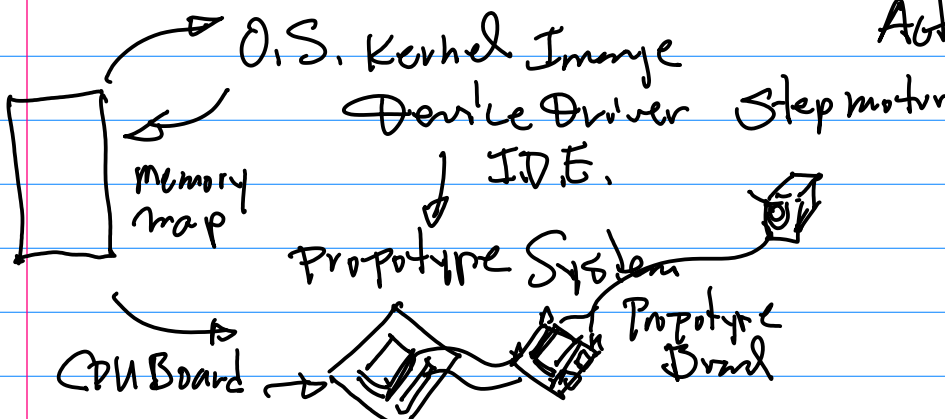 O.S. Kernel Image
Device Driver
Step motor
I.D.E.
memory
map
Propotype System
Propotype
Board
CPU Board